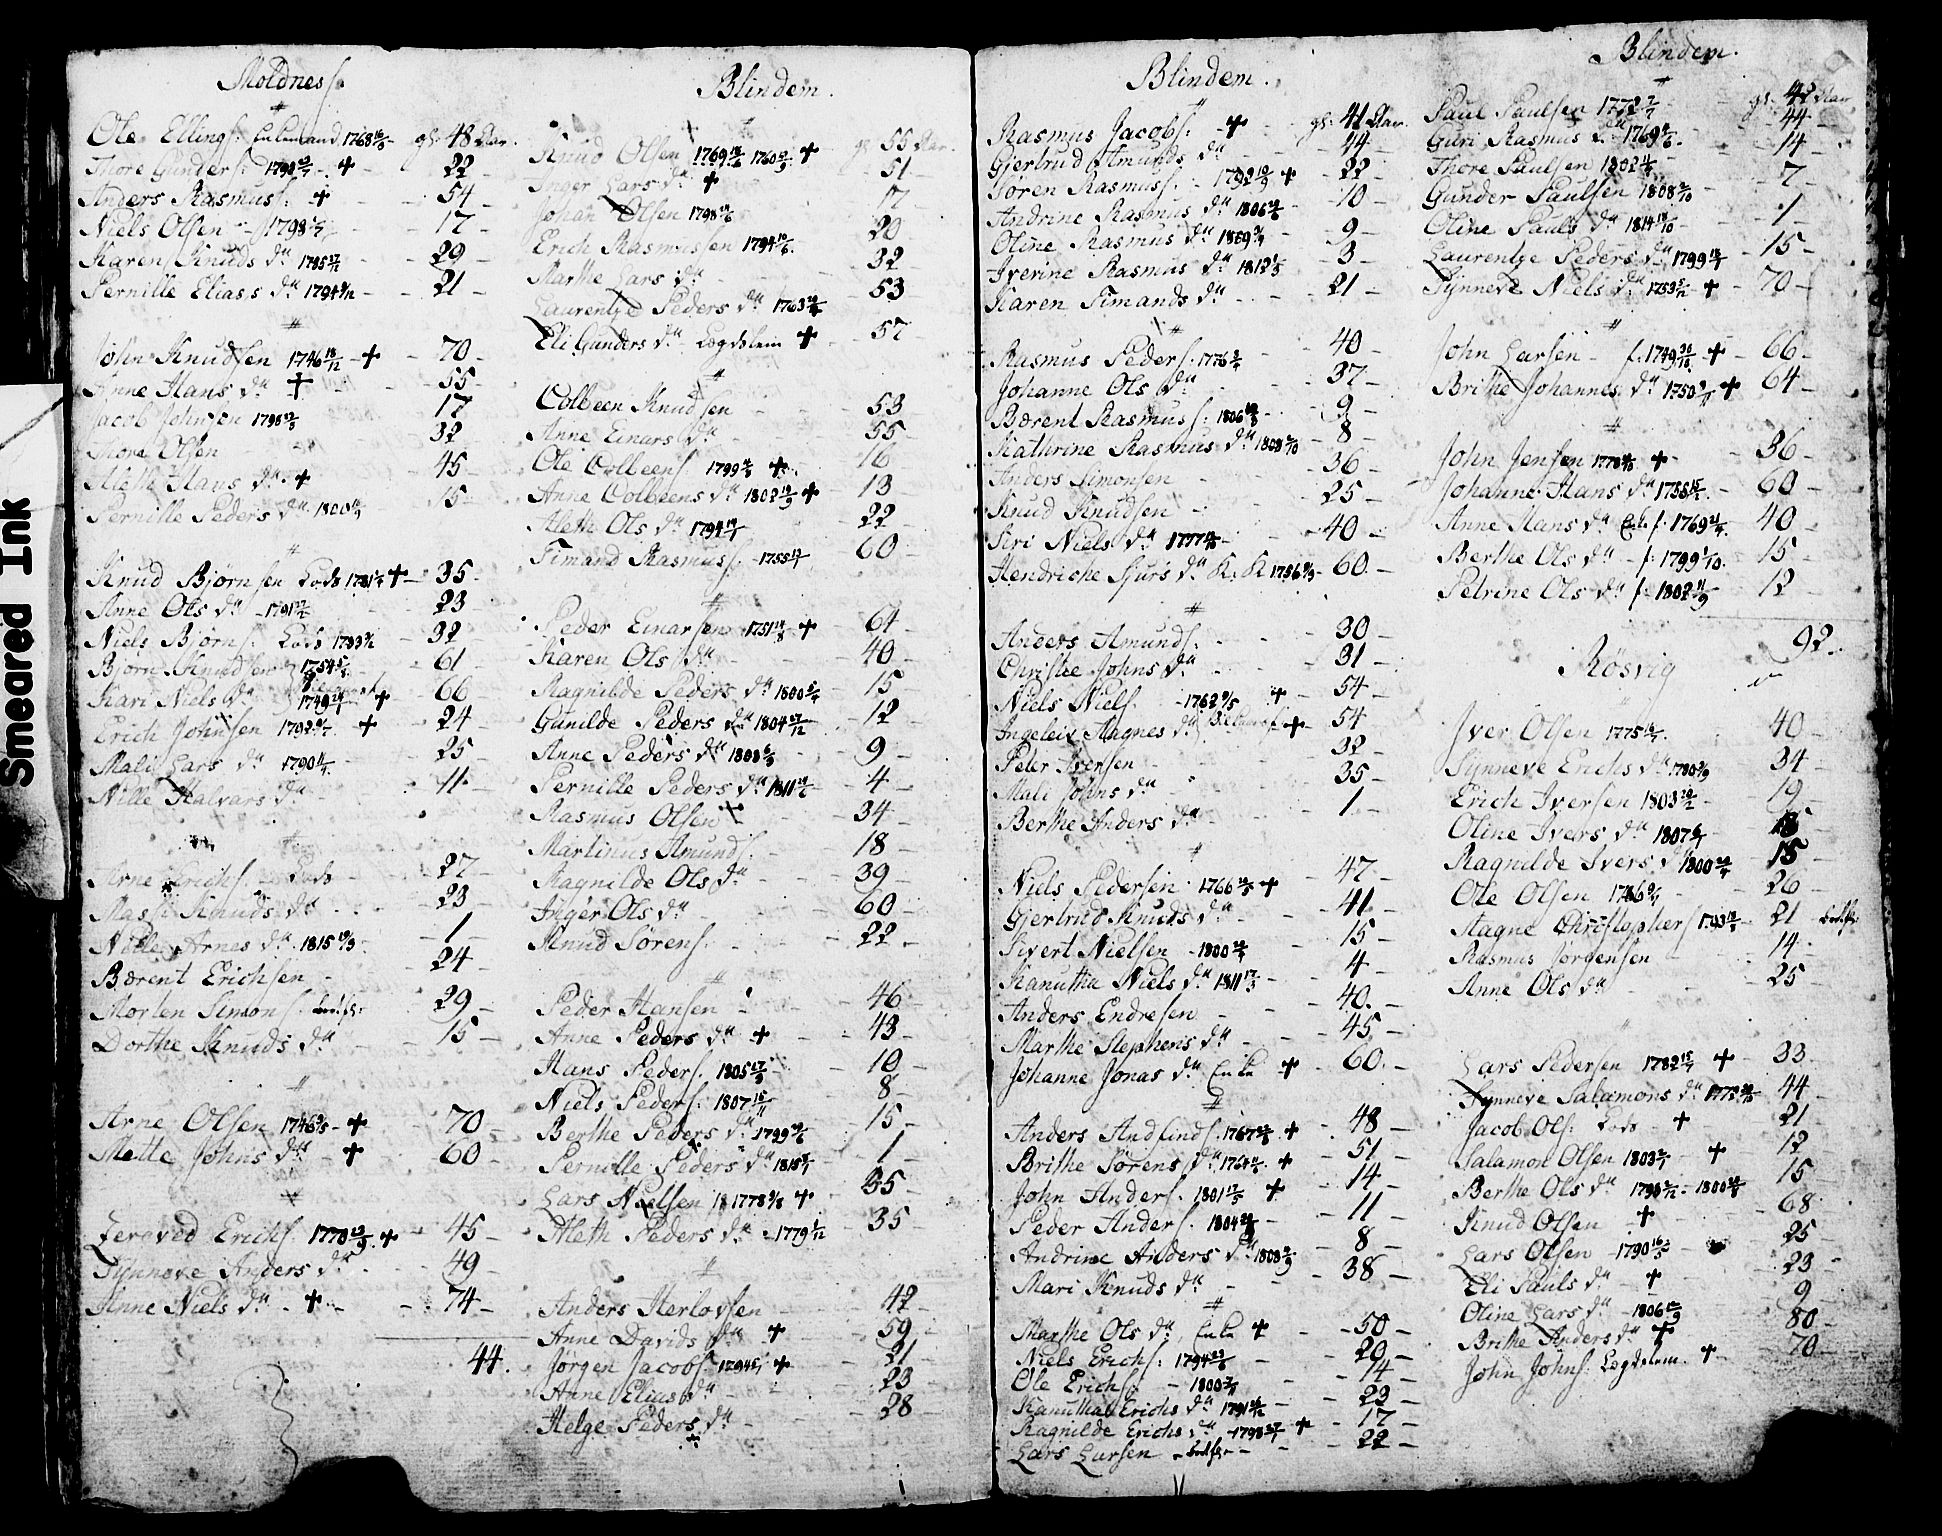 Smeared Ink
Moldnes
Ole Ellings: Enkemand 1768 gl: 48 Aar.
Thore Gunders: 1792 + 22
Anders Rasmus: + 54
Niels Olsen 1798 17
Karen Knuds dr 1785 29
Pernille Elias dr 1794 21
John Knudsen 1746 18/12 + 70
Anne Hans dr + 55
Jacob Johnsen 1798 17
Thore Olsen 32
Aleth Hans dr + 45
Pernille Peders dr 1800 15
Knud Bjørnsen Lods 1781 + 35
Anne Ols dr 1791 23
Niels Bjørns: Lods 1783 32
Bjørn Knudsen 1754 61
Kari Niels dr 1749 + 66
Erich Johnsen 1792 + 24
Mali Lars dr 1790 25
Nille Halvars dr 11
Arne Erichs: Lods 27
Knuds dr 23
Nille Arnes dr 1815 1
Bærent Erichsen 24
Morten Simons: 29
Dorthe Knuds dr 15
Arne Olsen 1746 + 70
Mette Johns dr + 60
Erichs: 1770 + 45
Synneve Anders dr 49
Anne Niels dr + 74
44.
Blindem.
Knud Olsen 1769 1760 + gl: 55 Aar.
Inger Lars dr + 51
Johan Olsen 1798 17
Erich Rasmussen 1794 20
Marthe Lars dr 32
Laurentze Peders dr 1763 53
Eli Gunders dr Lægdslem + 57
Colbeen Knudsen 53
Anne Einars dr 55
Ole Colbeens: 1799 + 16
Anne Colbeens dr 1802 + 13
Aleth Ols dr 1794 22
Timand Rasmuss: 1755 60
Peder Einarsen 1751 + 64
Karen Ols dr 40
Ragnilde Peders dr 1800 15
Gunilde Peders dr 1804 27/12 12
Anne Peders dr 1808 9
Pernille Peders dr 1811 4
Rasmus Olsen 34
Martinus Amunds: 18
Ragnilde Ols dr 39
Inger Ols dr 60
Knud Sørens: 22
Peder Hansen 46
Anne Peders dr + 43
Hans Peders: 1805 10
Niels Peders: 1807 15/11 8
Berthe Peders dr 1799 15
Pernille Peders dr 1815 1
Lars Nielsen 1778 + 35
Aleth Peders dr 1779 1/12 35
Anders Herlovsen 42
Anne Davids dr + 59
Jørgen Jacobs: 1794 + 21
Anne Elias dr 23
Helge Peders dr 28
Blindem.
Rasmus Jacobs: + gl: 41 Aar.
Gjertrud Amunds dr 44
Søren Rasmuss: 1792 + 22
Andrine Rasmus dr 1806 10
Oline Rasmus dr 1809 9
Iverine Rasmus dr 1812 3
Karen Timands dr 21
Rasmus Peders: 1776 40
Johanne Ols dr 37
Bærent Rasmuss: 1806 9
Kathrine Rasmus dr 1808 8
Anders Simonsen 36
Knud Knudsen 25
Siri Niels dr 1777 40
Hendriche Sjurs dr K: K 1756 60
Anders Amunds: 30
Christie Johns dr 31
Niels Niels: 1762 + 54
Ingeleiv Aagnes dr + 54
Peter Iversen 32
Mali Johns dr 35
Berthe Anders dr 1
Niels Pedersen 1766 + 47
Gjertrud Knuds dr 41
Sivert Nielsen 1800 15
Kanutha Niels dr 1811 17/3 4
Anders Endresen 40
Marthe Stephens dr 45
Johanne Jonas dr Enke + 60
Anders Andfinds: 1767 + 48
Brithe Sørens dr 1764 + 51
John Anders: 1801 17/5 + 14
Peder Anders: 1804 11
Andrine Anders dr 1808 8
Mari Knuds dr 38
Marthe Ols dr Enke + 50
Niels Erichs: 1794 20
Ole Erichs: 1800 14
Kanutha Erichs dr 1791 23
Ragnilde Erichs dr 1798 + 17
Lars Larsen 22
Blindem.
Paul Paulsen 1772 gl: 42 Aar
Guri Rasmus dr 1769 44
Thore Paulsen 1802 14
Gunder Paulsen 1808 7
Oline Pauls dr 1814 1
Laurentze Peders dr 1799 15
Synneve Niels dr 1753 + 70
John Larsen f. 1749 30/10 + 66
Brithe Johannes dr 1750 + 64
John Jensen 1778 + 36
Johanne Hans dr 1755 60
Anne Hans dr Enk. f. 1769 40
Berthe Ols dr f. 1799 1/10 15
Petrine Ols dr f. 1802 11/9 12
92.
Røsvig
Iver Olsen 1775 40
Synneve Erichs dr 1780 34
Erich Iversen 1803 19
Oline Ivers dr 1807
Ragnilde Ivers dr 1800 15
Ole Olsen 1786 26
Aagne Christophers: 1793 21
Rasmus Jørgensen 14
Anne Ols dr 25
Lars Pedersen 1782 + 33
Synneve Salamons dr 1772 44
Jacob Ols: Lods + 21
Salamon Olsen 1803 + 12
Berthe Ols dr 1798 1800 15
Knud Olsen + 68
Lars Olsen 1790 25
Eli Pauls dr + 23
Oline Lars dr 1806 9
Brithe Anders dr + 80
John Johns: Lægdslem + 70